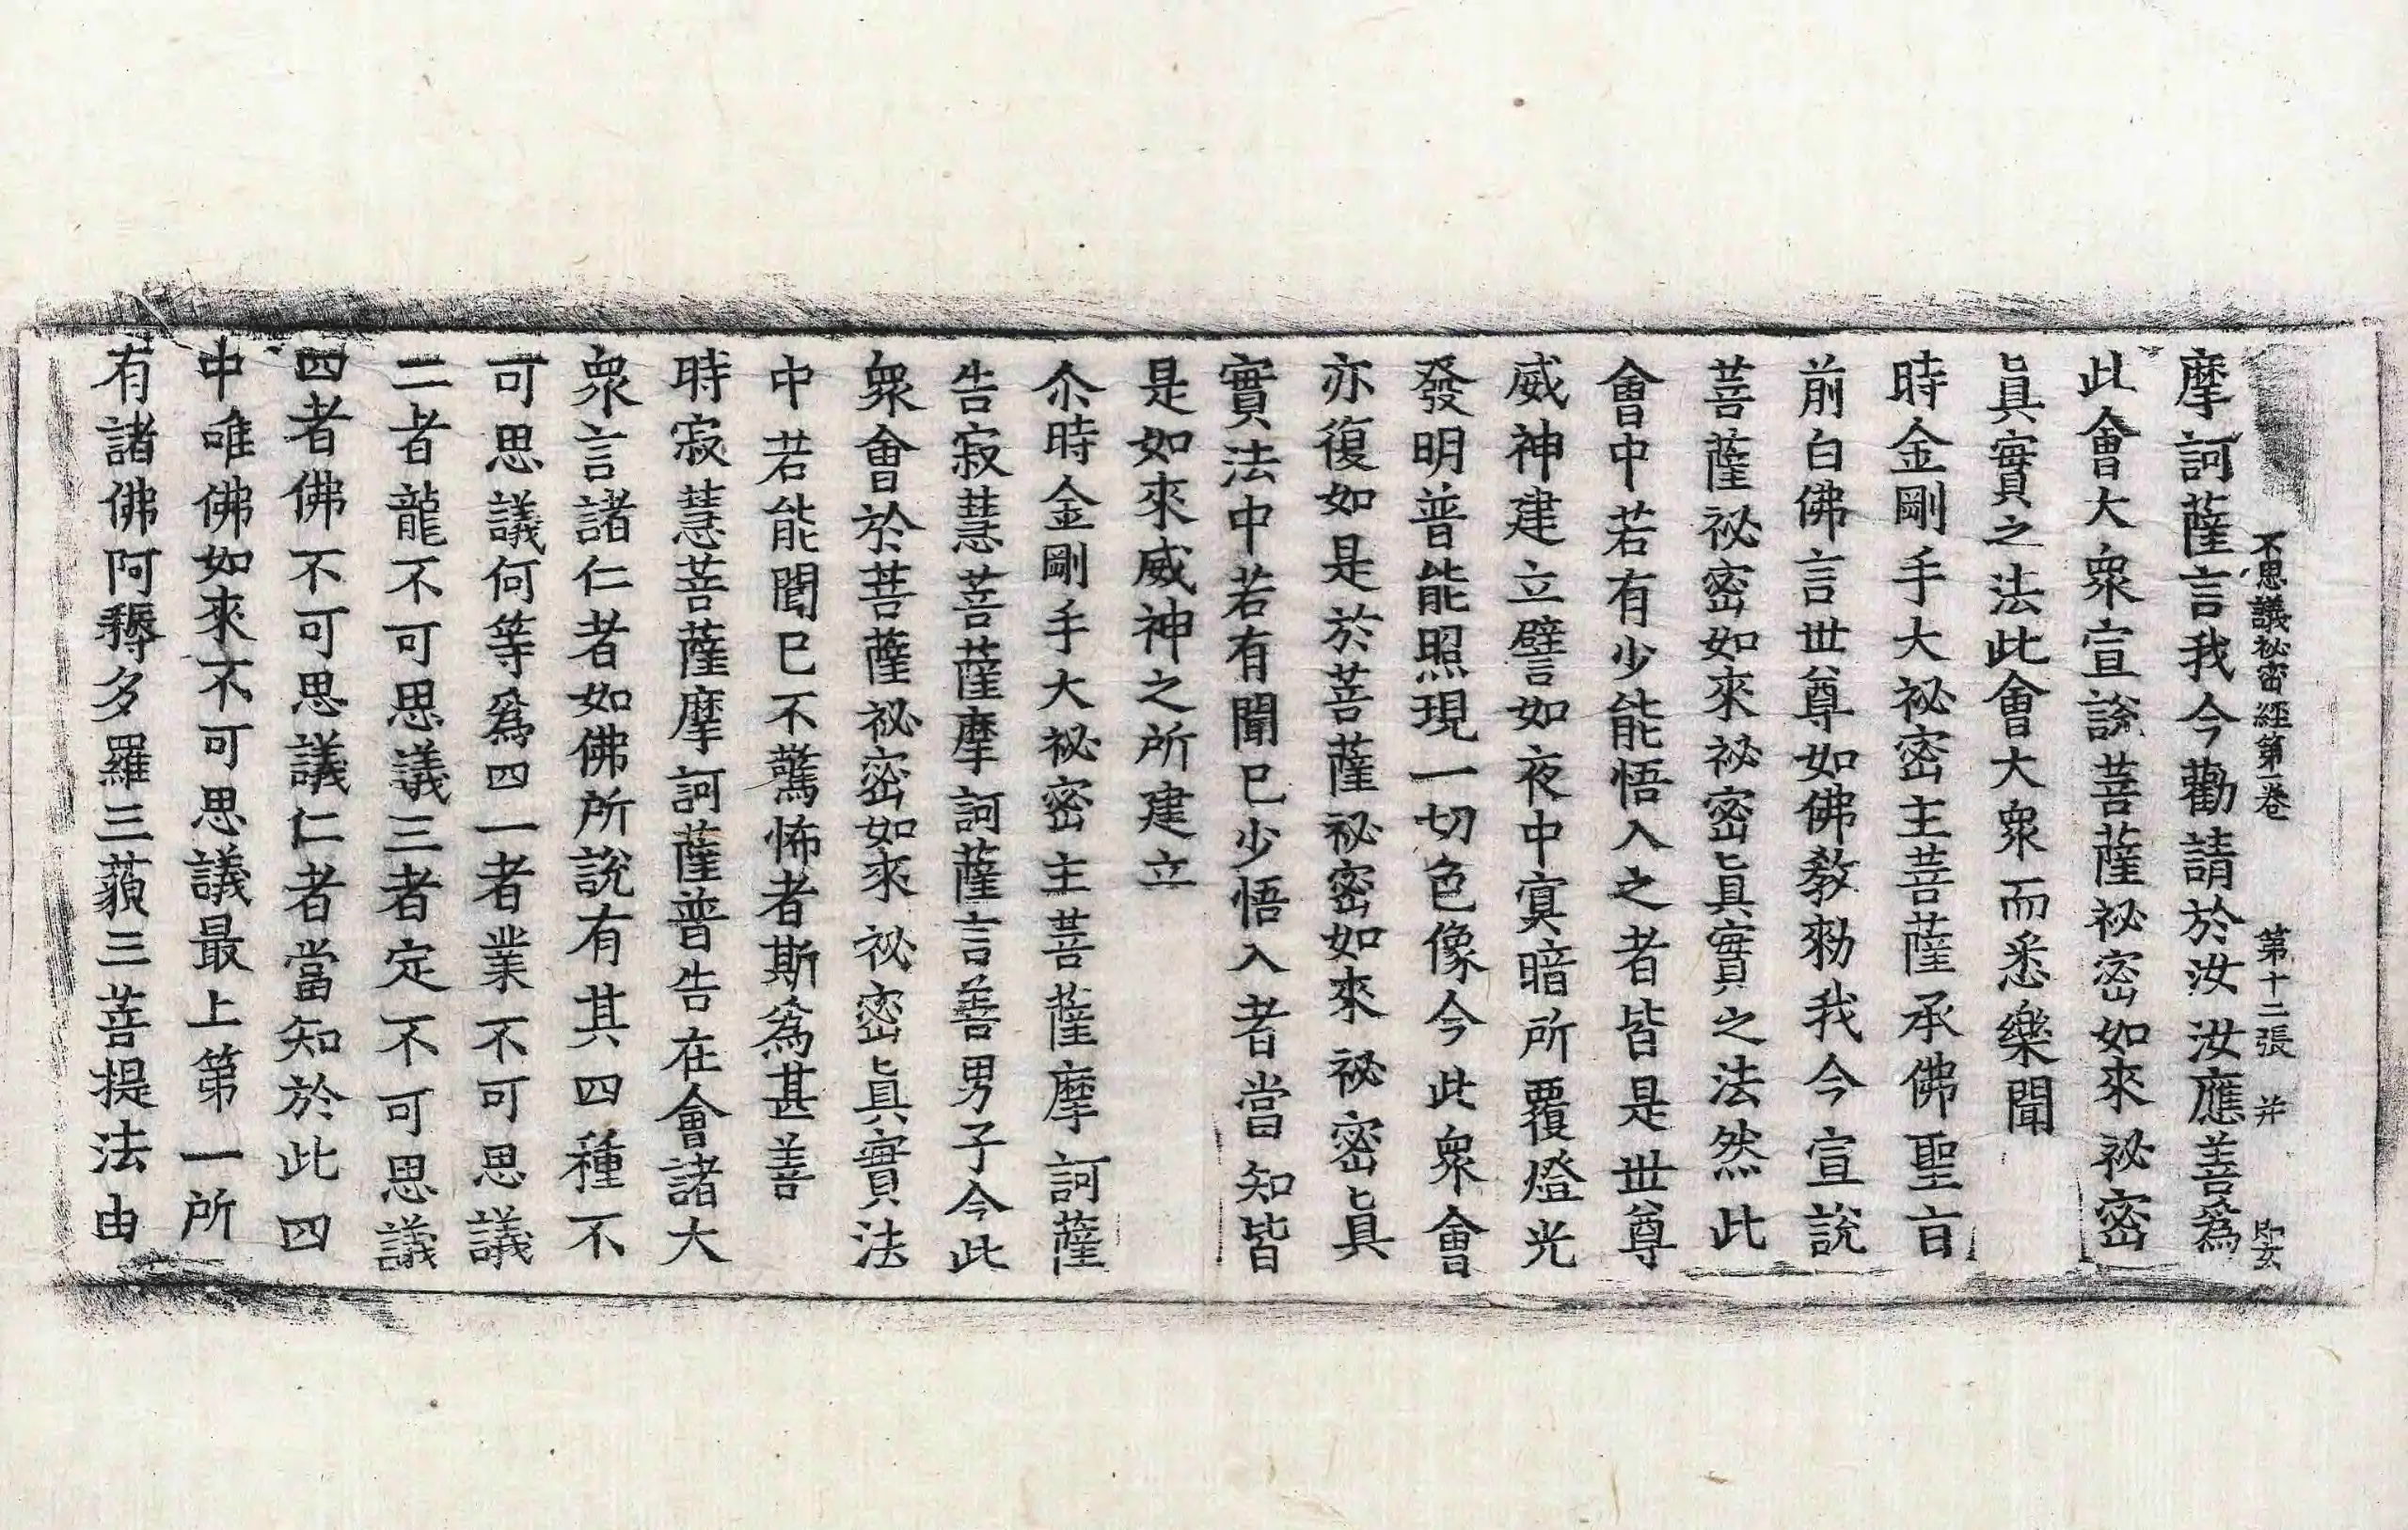 不思議祕密經第一卷　第十二張　并
摩訶薩言我今勸請於汝汝應善爲
此會大衆宣說菩薩祕密如來祕密
眞實之法此會大衆而悉樂聞
時金剛手大祕密主菩薩承佛聖旨
前白佛言世尊如佛教勑我今宣說
菩薩祕密如來祕密眞實之法然此
會中若有少能悟入之者皆是世尊
威神建立譬如夜中寘暗所覆燈光
發明普能照現一切色像今此衆會
亦復如是於菩薩祕密如來祕密眞
實法中若有聞已少悟入者當知皆
是如來威神之所建立
尒時金剛手大祕密主菩薩摩訶薩
告寂慧菩薩摩訶薩言善男子今此
衆會於菩薩祕密如來祕密眞實法
中若能聞已不驚怖者斯爲甚善
時寂慧菩薩摩訶薩普告在會諸大
衆言諸仁者如佛所說有其四種不
可思議何等爲四一者業不可思議
二者龍不可思議三者定不可思議
四者佛不可思議仁者當知於此四
中唯佛如來不可思議最上第一所
有諸佛阿耨多羅三藐三菩提法由